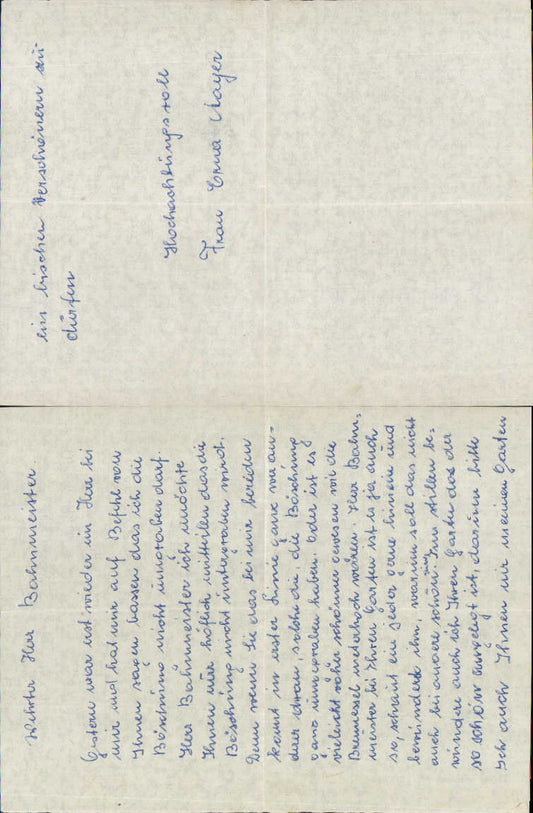 Wehrter Herr Bahnmeister.
Gestern war erst wieder ein Herr bei
mir und hat mir auf Befehl von
Ihnen sagen lassen das ich die
Böschung nicht umgraben darf.
Herr Bahnmeister ich möchte
Ihnen nur höflich mitteilen das die
Böschung nicht umgegraben wird.
Denn wenn Sie das bei mir
kommt in erster Linie ganz wo an-
derst dran, solche die, die Böschung
ganz umgegraben haben. Oder ist es
vieleicht schöner gewesen wo die
Brennessel meterhoch waren. Herr Bahn-
meister bei Ihren Garten ist es ja auch
so, schaut ein jeder gerne hinein und
bewundert ihn, warum soll das nicht
auch bei andere schön sein. Im stillen be-
wundre auch ich Ihren Garten das der
so schön angelegt ist, darum bitte
ich auch Ihnen mir meinen Garten
ein bischen verschönern zu
dürfen
Hochachtungsvoll
Frau Erna Mayer